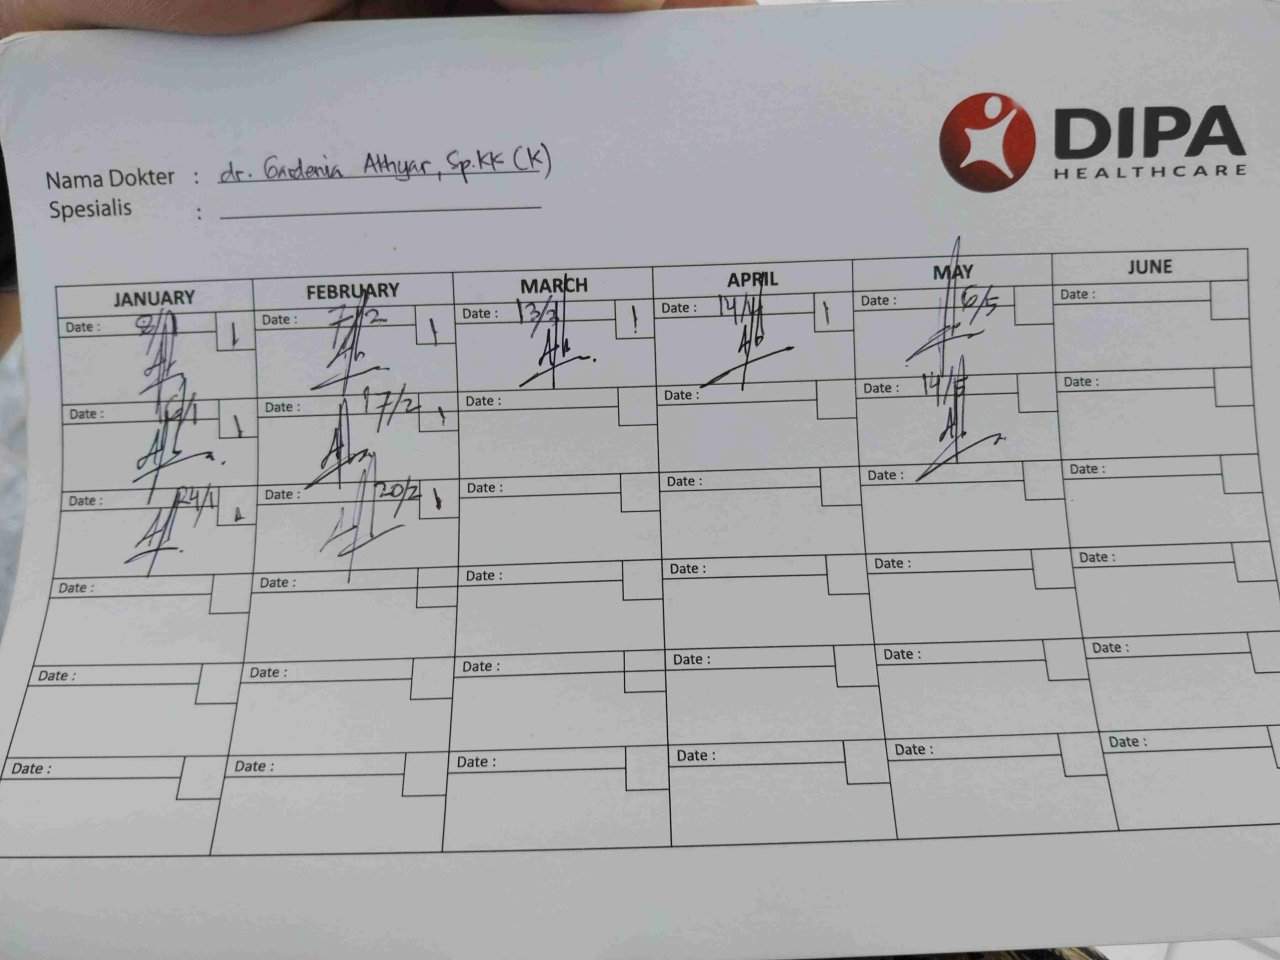 DIPA
HEALTHCARE
Nama Dokter : dr. Gardenia Akhyar, Sp.KK (K)
Spesialis :
JANUARY FEBRUARY MARCH APRIL MAY JUNE
Date : 8/1 1 Date : 7/2 1 Date : 13/3 1 Date : 14/4 1 Date : 6/5 Date :
Date : 1 Date : 17/2 1 Date : Date : Date : 14/5 Date :
Date : 24/1 1 Date : 20/2 1 Date : Date : Date : Date :
Date : Date : Date : Date : Date : Date :
Date : Date : Date : Date : Date : Date :
Date : Date : Date : Date : Date : Date :